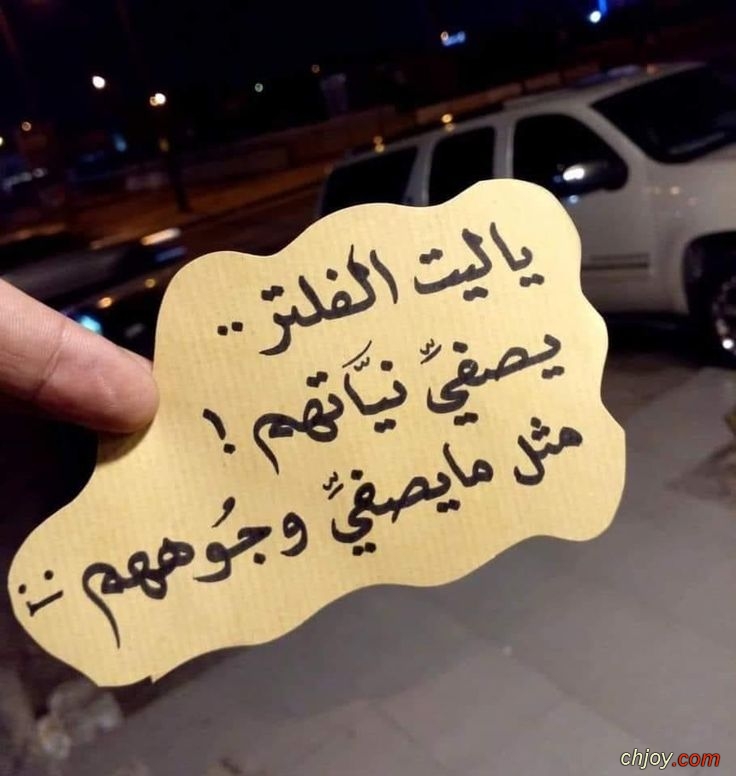 ياليت الفلتر ..
يصفيِّ نيَّاتهم !
مثل مايصفيِّ وجُوههم
chjoy.com